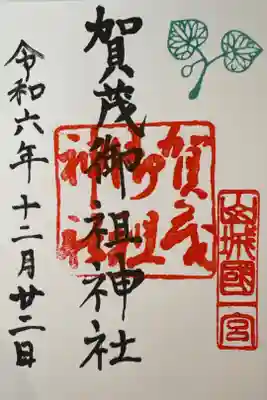 山城國一宮
賀茂御祖神社
賀茂御祖神社
令和六年十二月廿二日